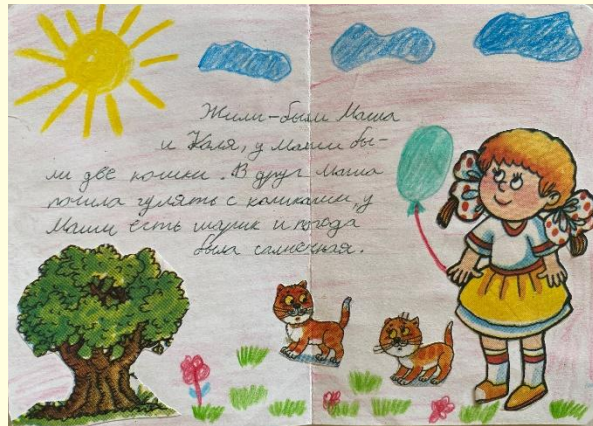 Жили-были Маша
и Коля, у Маши бы-
ли две кошки. В друг Маша
пошла гулять с кошками, у
Маши есть шарик и погода
была солнечная.